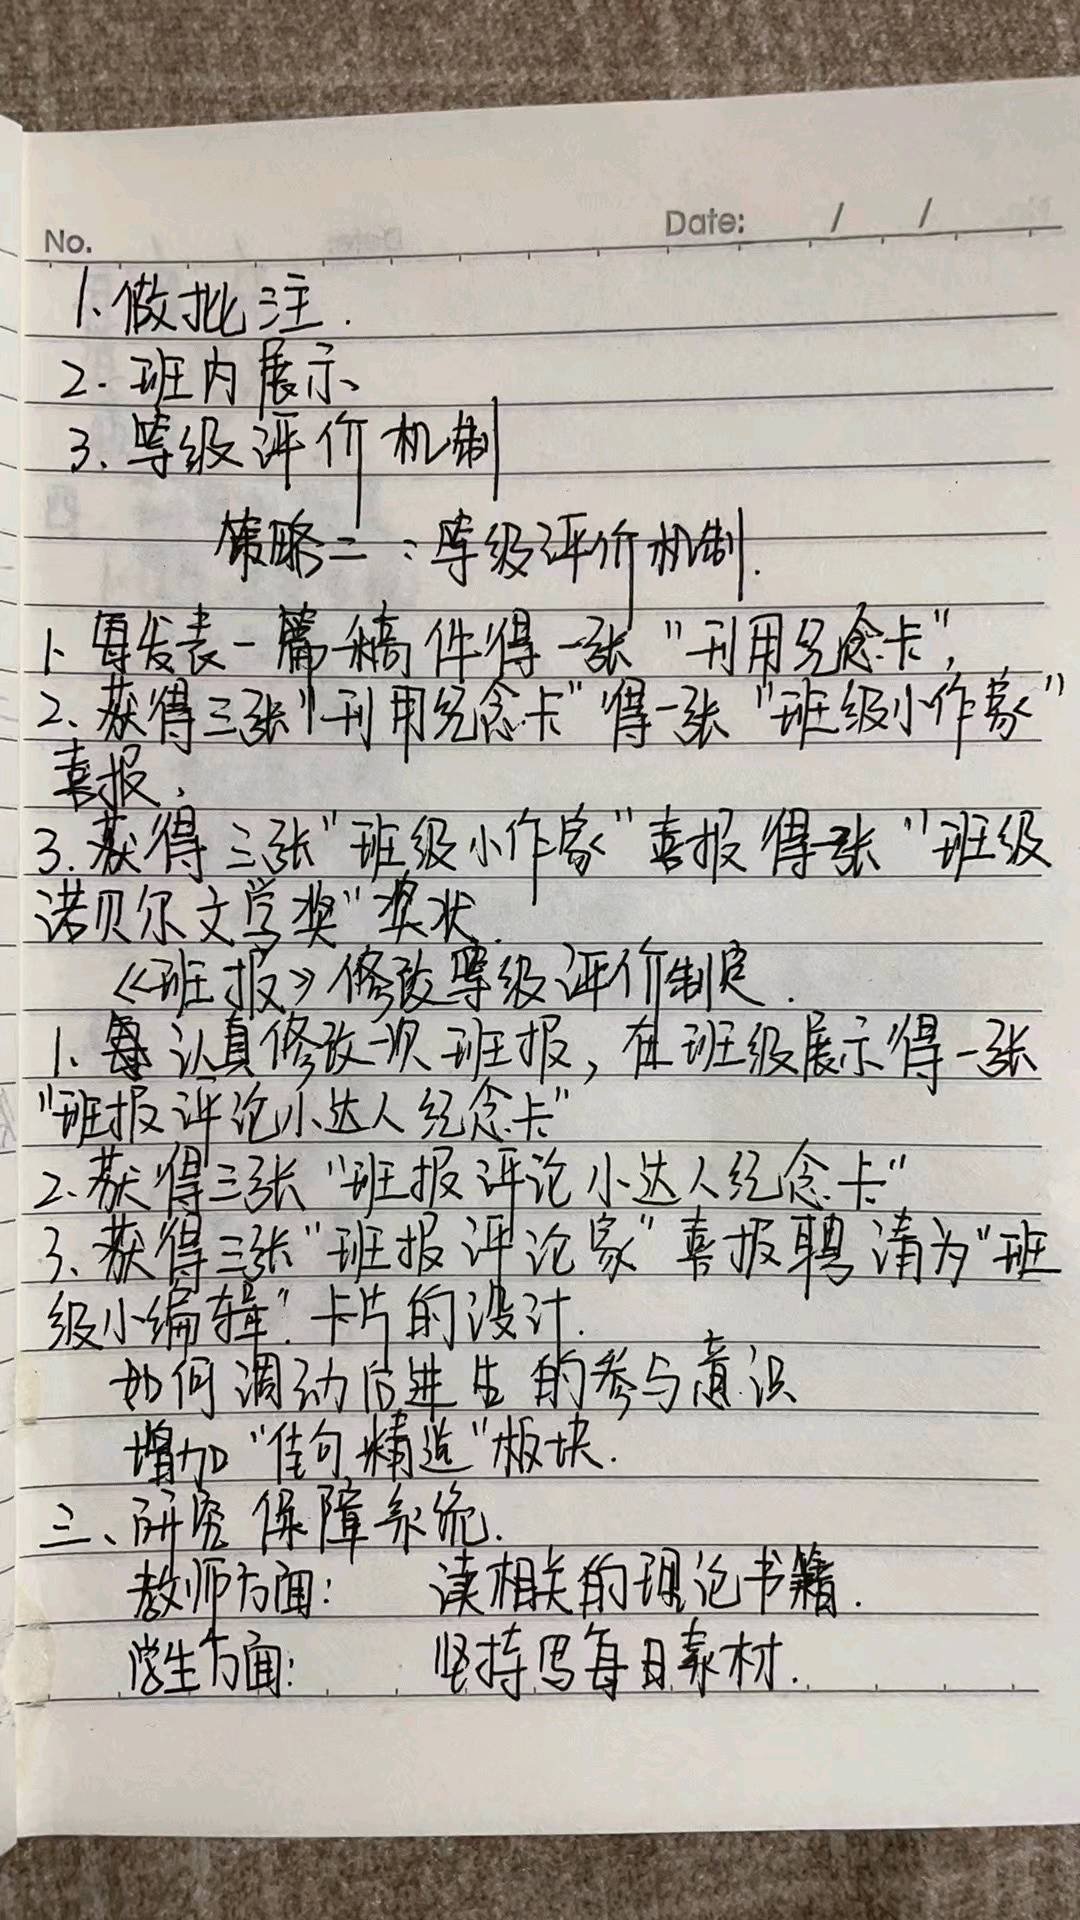 No.
Date: / /
1、做批注.
2. 班内展示、
3、等级评价机制
策略二：等级评价机制.
1、每发表一篇稿件得一张"刊用纪念卡",
2、获得三张"刊用纪念卡"得一张"班级小作家"
喜报,
3.获得三张"班级小作家"喜报得一张"班级
诺贝尔文学奖"奖状.
《班报》修改等级评价制定.
1、每认真修改一次班报，在班级展示得一张
"班报评论小达人纪念卡"
2、获得三张"班报评论小达人纪念卡"
3、获得三张"班报评论家"喜报聘请为"班
级小编辑".卡片的设计.
如何调动后进生的参与意识
增加"佳句精选"板块.
三、研究保障系统.
教师方面： 读相关的理论书籍.
学生方面： 坚持写每日素材.